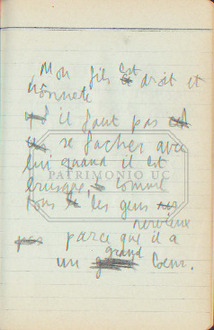 Mon fils est droit et
honnete
il faut pas
se facher avec
lui quand il est
brusque, comme
tous les gens
nerveux
parce que il a
un grand Coeur.
PATRIMONIO UC